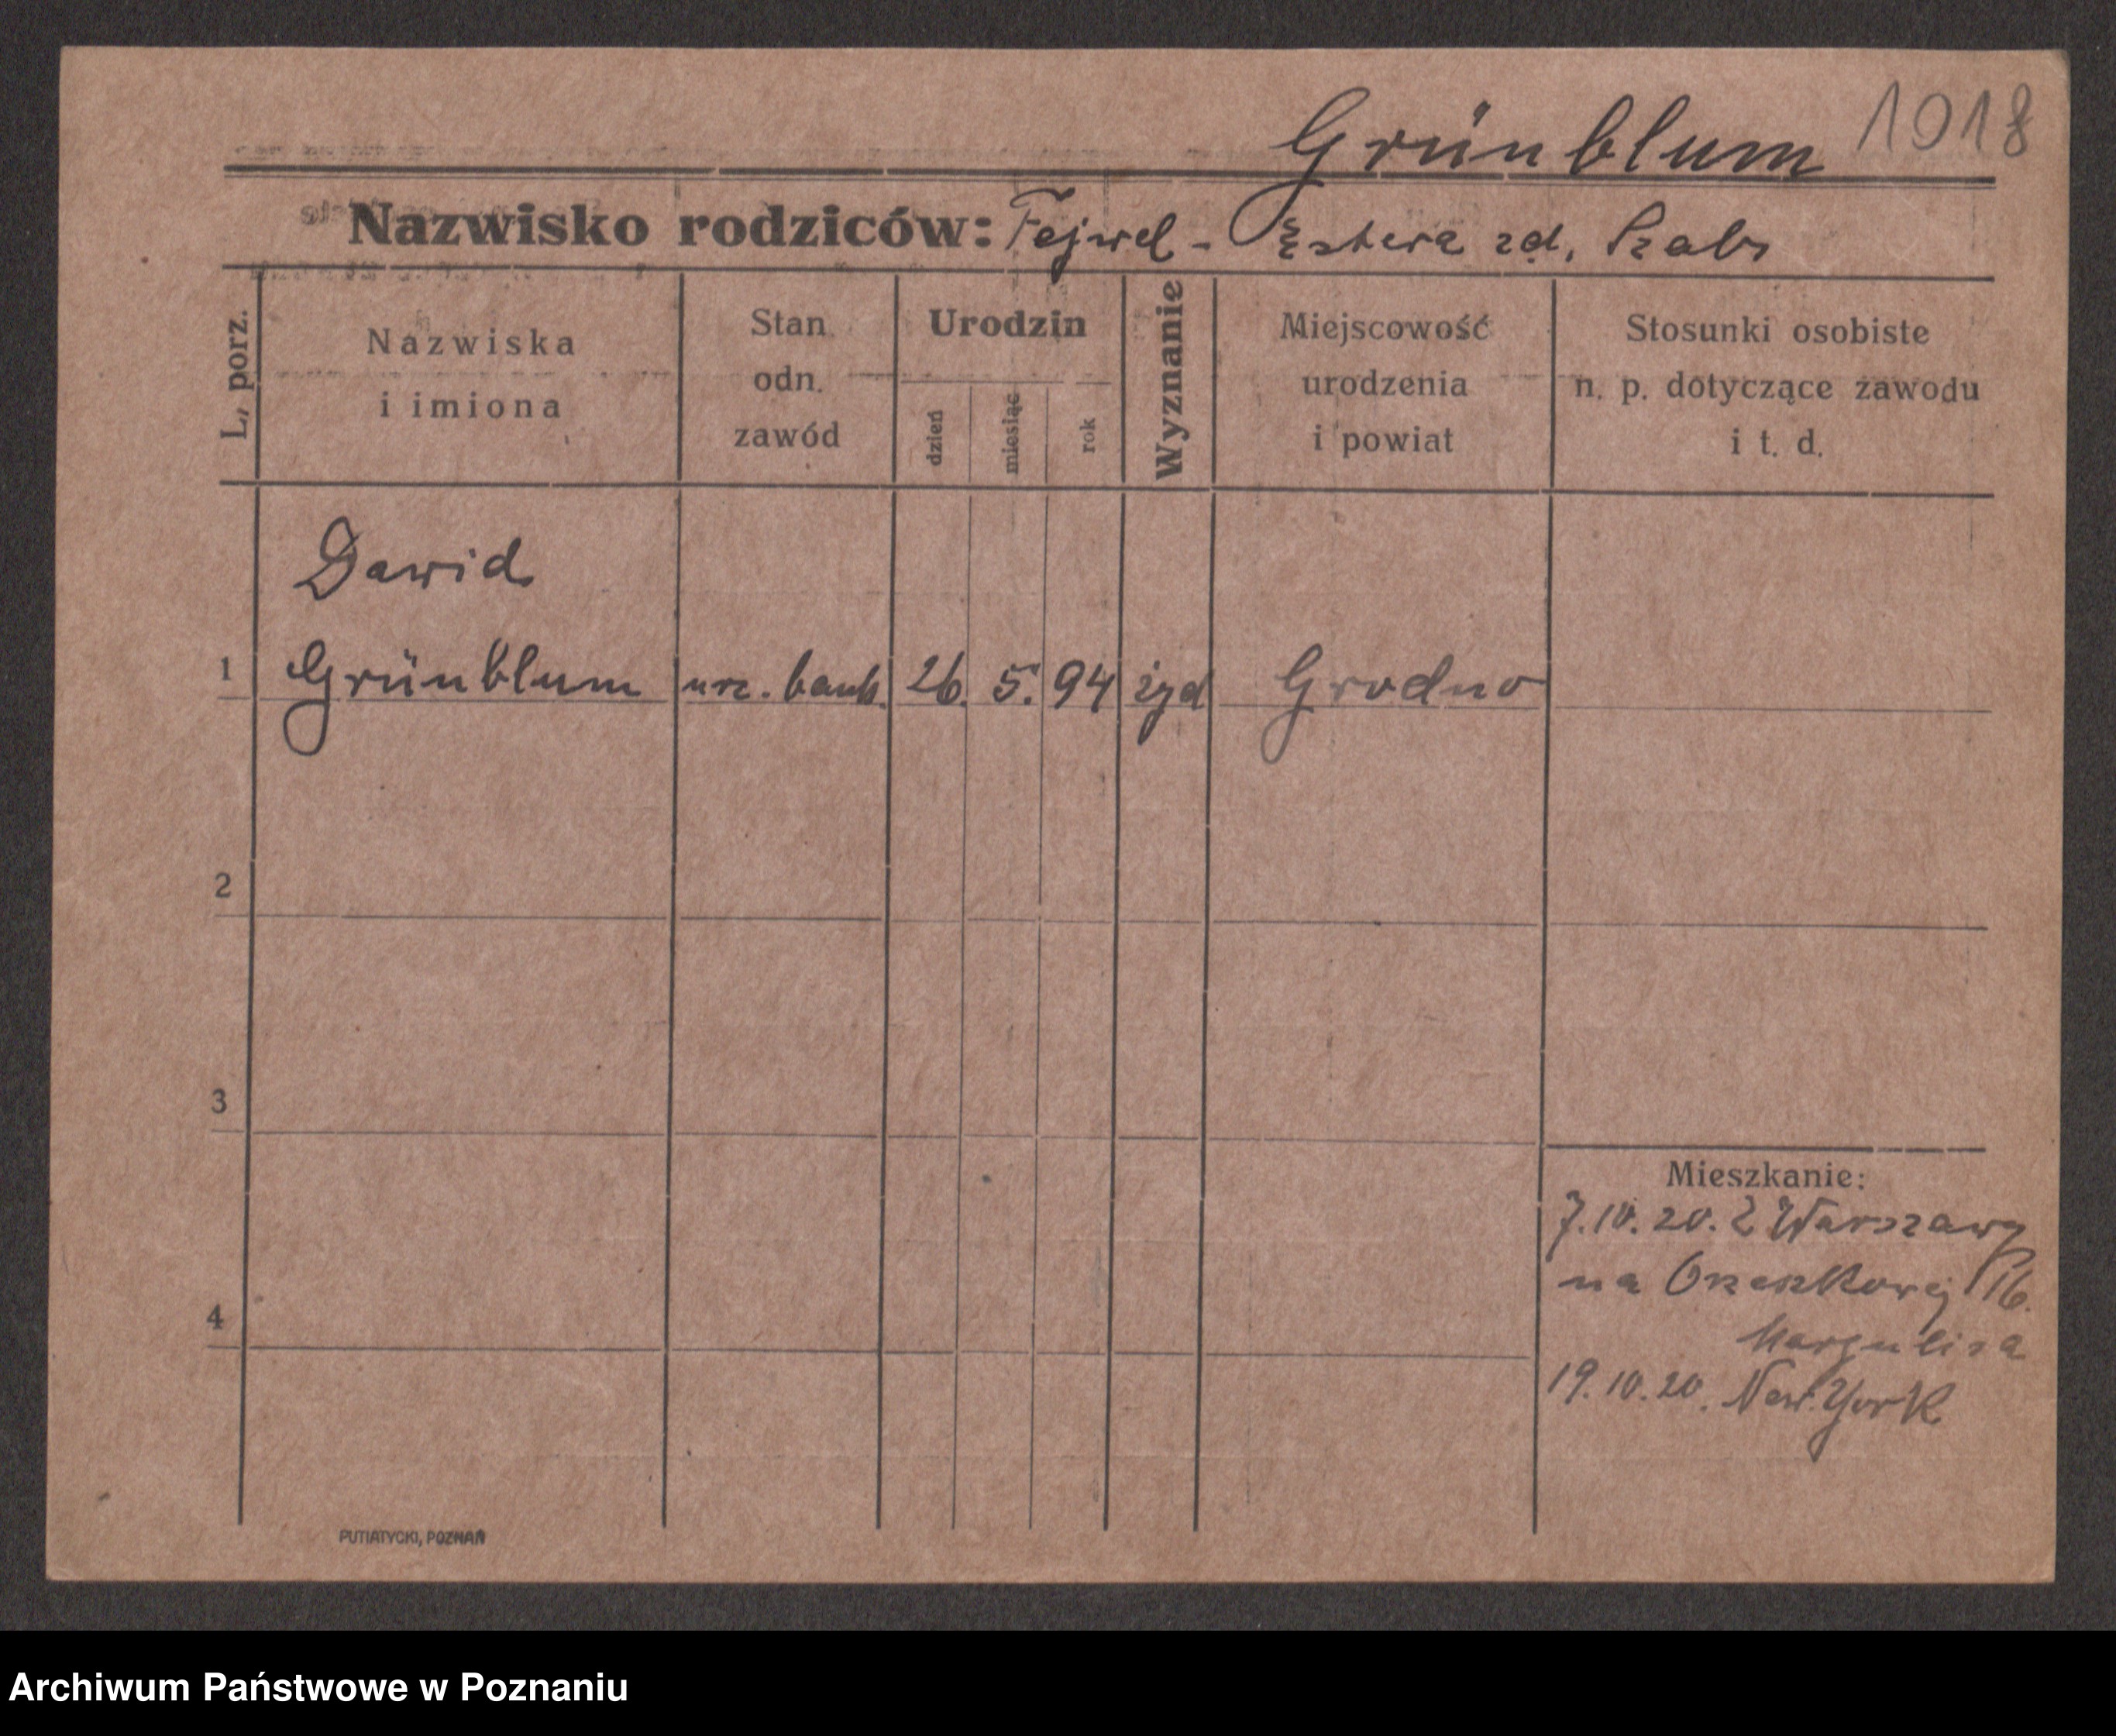 Grünblum 1018
Nazwisko rodziców: Fejwel - Estera zd. Szabs
L. porz.
Nazwiska
i imiona
Stan
odn.
zawód
Urodzin
dzień
miesiąc
rok
Wyznanie
Miejscowość
urodzenia
i powiat
Stosunki osobiste
n. p. dotyczące zawodu
i t. d.
Dawid
1 Grünblum urz. bank. 26. 5. 94 żyd Grodno
2
3
4
Mieszkanie:
7.10.20. Z Warszawy
na Orzeszkowej 16.
Margulisa
19.10.20. New York
PUTIATYCKI, POZNAŃ
Archiwum Państwowe w Poznaniu